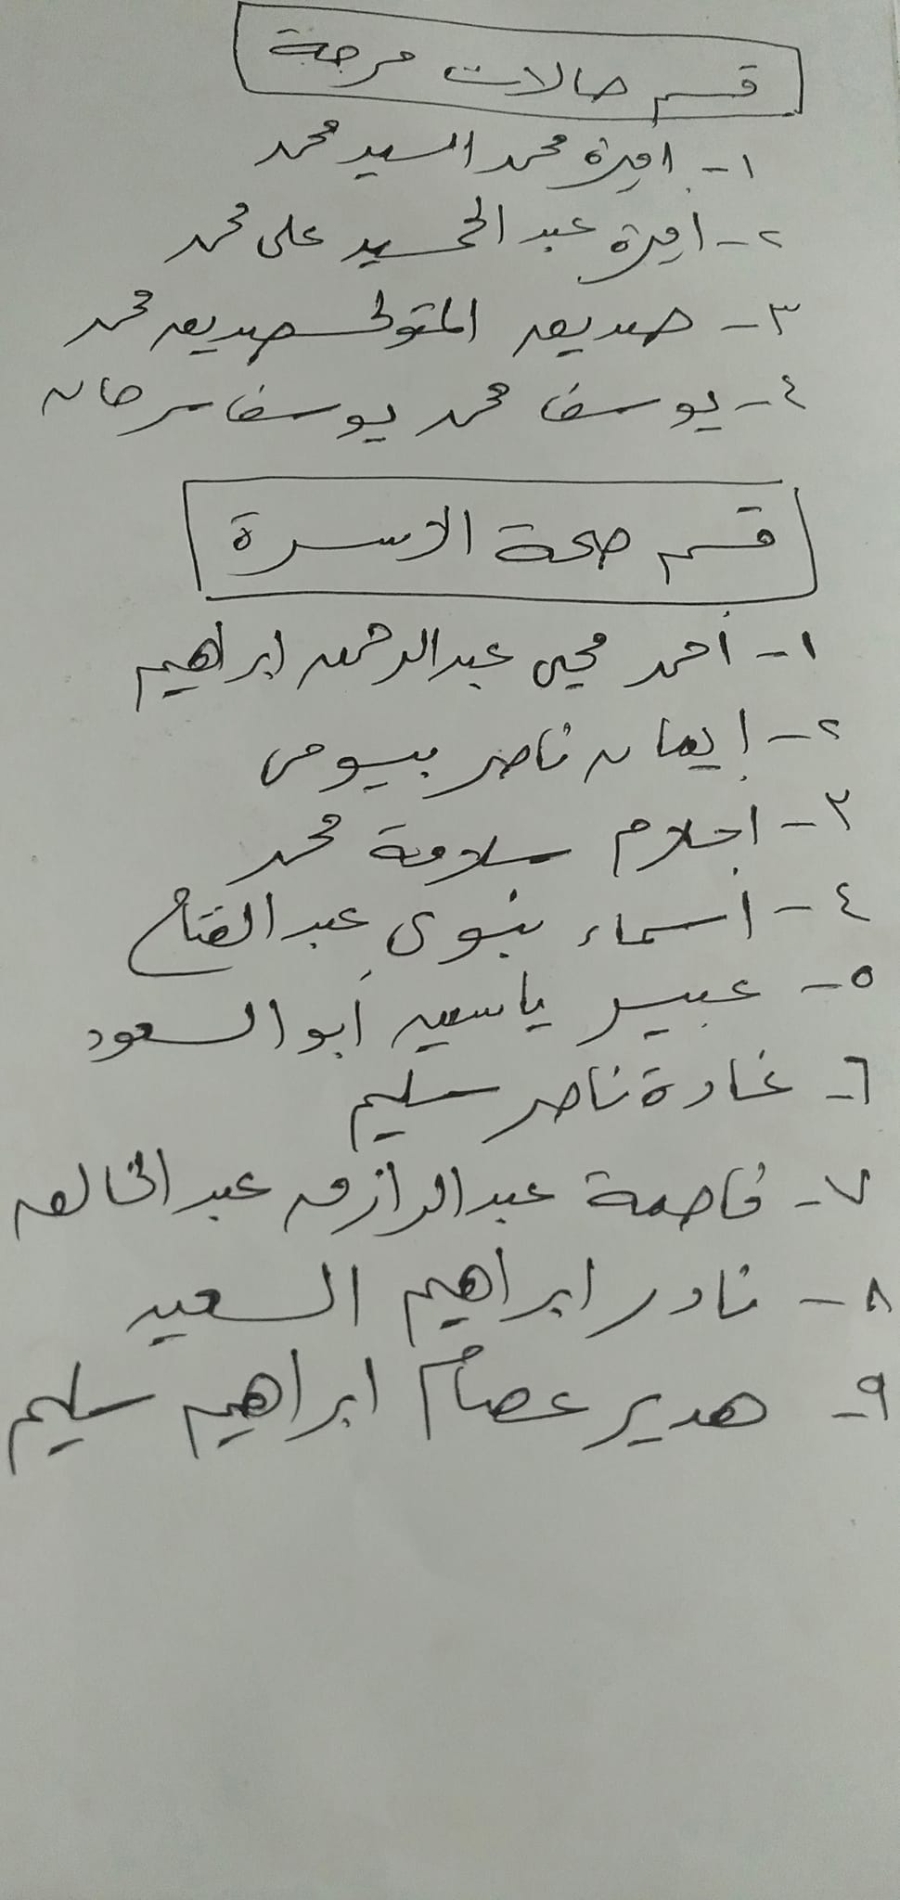 قسم حالات حرجة
١- اميرة محمد السيد محمد
٢- اميرة عبد الحميد على محمد
٣- صديق المتولى صديق محمد
٤- يوسف محمد يوسف سرحان
قسم صحة الاسرة
١- أحمد محيى عبدالرحمن ابراهيم
٢- إيمان ناصر بيومى
٣- احلام سلامة محمد
٤- أسماء بنوى عبد الفتاح
٥- عبير ياسين أبو السعود
٦- غادة ناصر سليم
٧- فاطمة عبدالرازق عبد الخالق
٨- نادر ابراهيم السعيد
٩- هدير عصام ابراهيم سليم